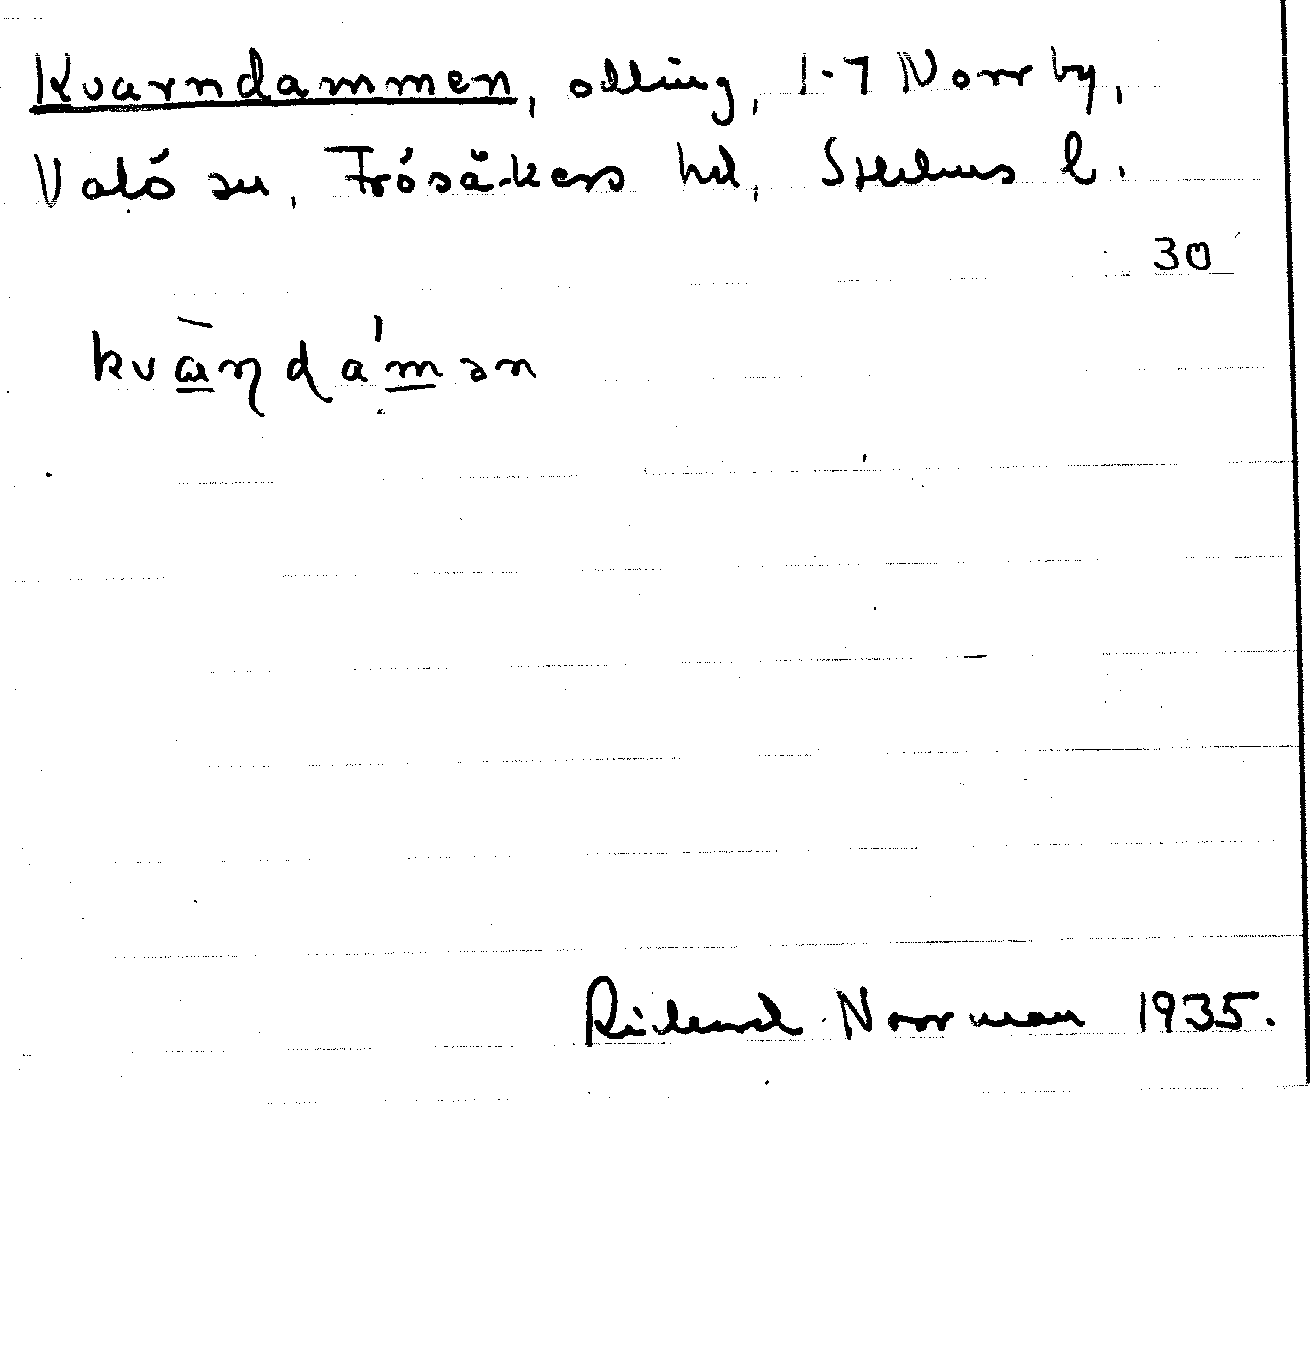 Kvarndammen, odling, 1-7 Norrby,
Valö sn, Frösåkers hd, Sthlms l.
30
kvàṇdámən
Rickard Norrman 1935.